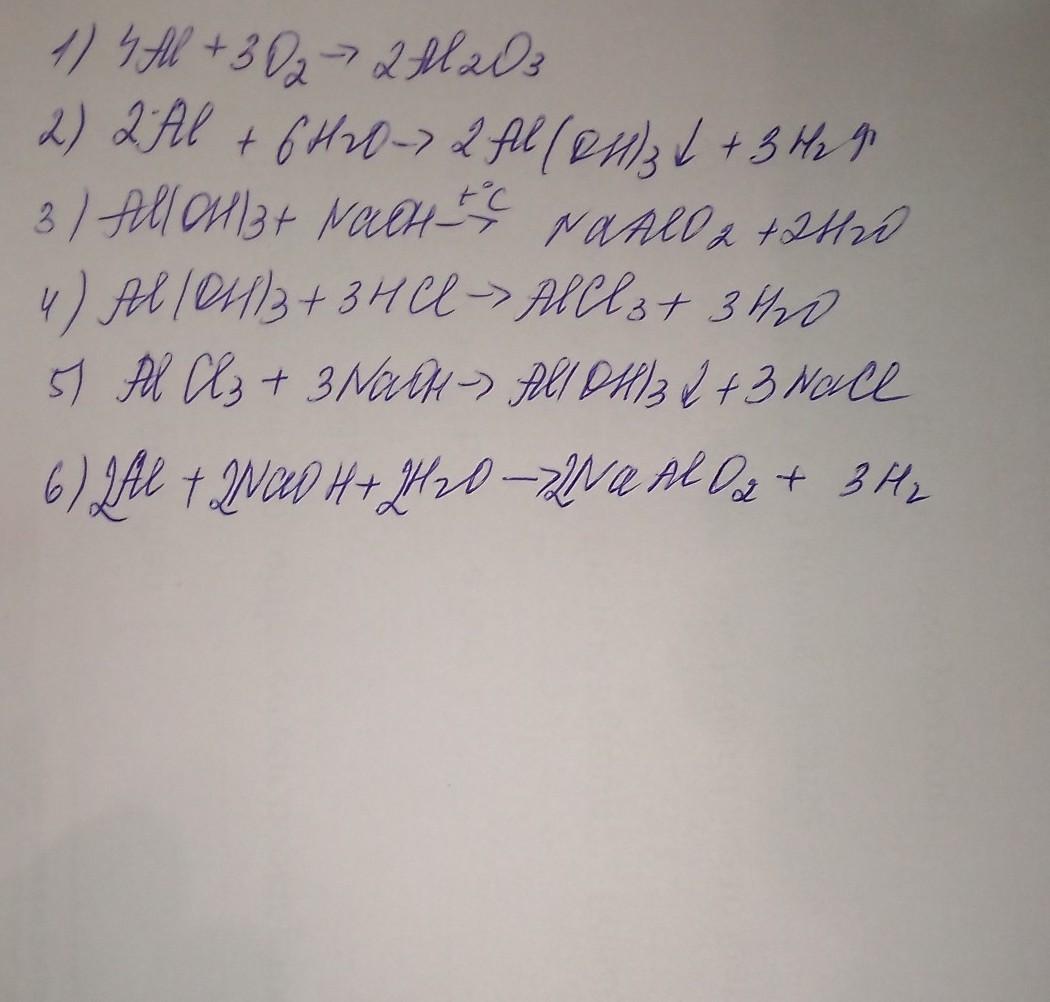 1) 4Al + 3O₂ → 2Al₂O₃
2) 2Al + 6H₂O → 2Al(OH)₃↓ + 3H₂↑
3) Al(OH)₃ + NaOH t°C→ NaAlO₂ + 2H₂O
4) Al(OH)₃ + 3HCl → AlCl₃ + 3H₂O
5) AlCl₃ + 3NaOH → Al(OH)₃↓ + 3NaCl
6) 2Al + 2NaOH + 2H₂O → 2NaAlO₂ + 3H₂